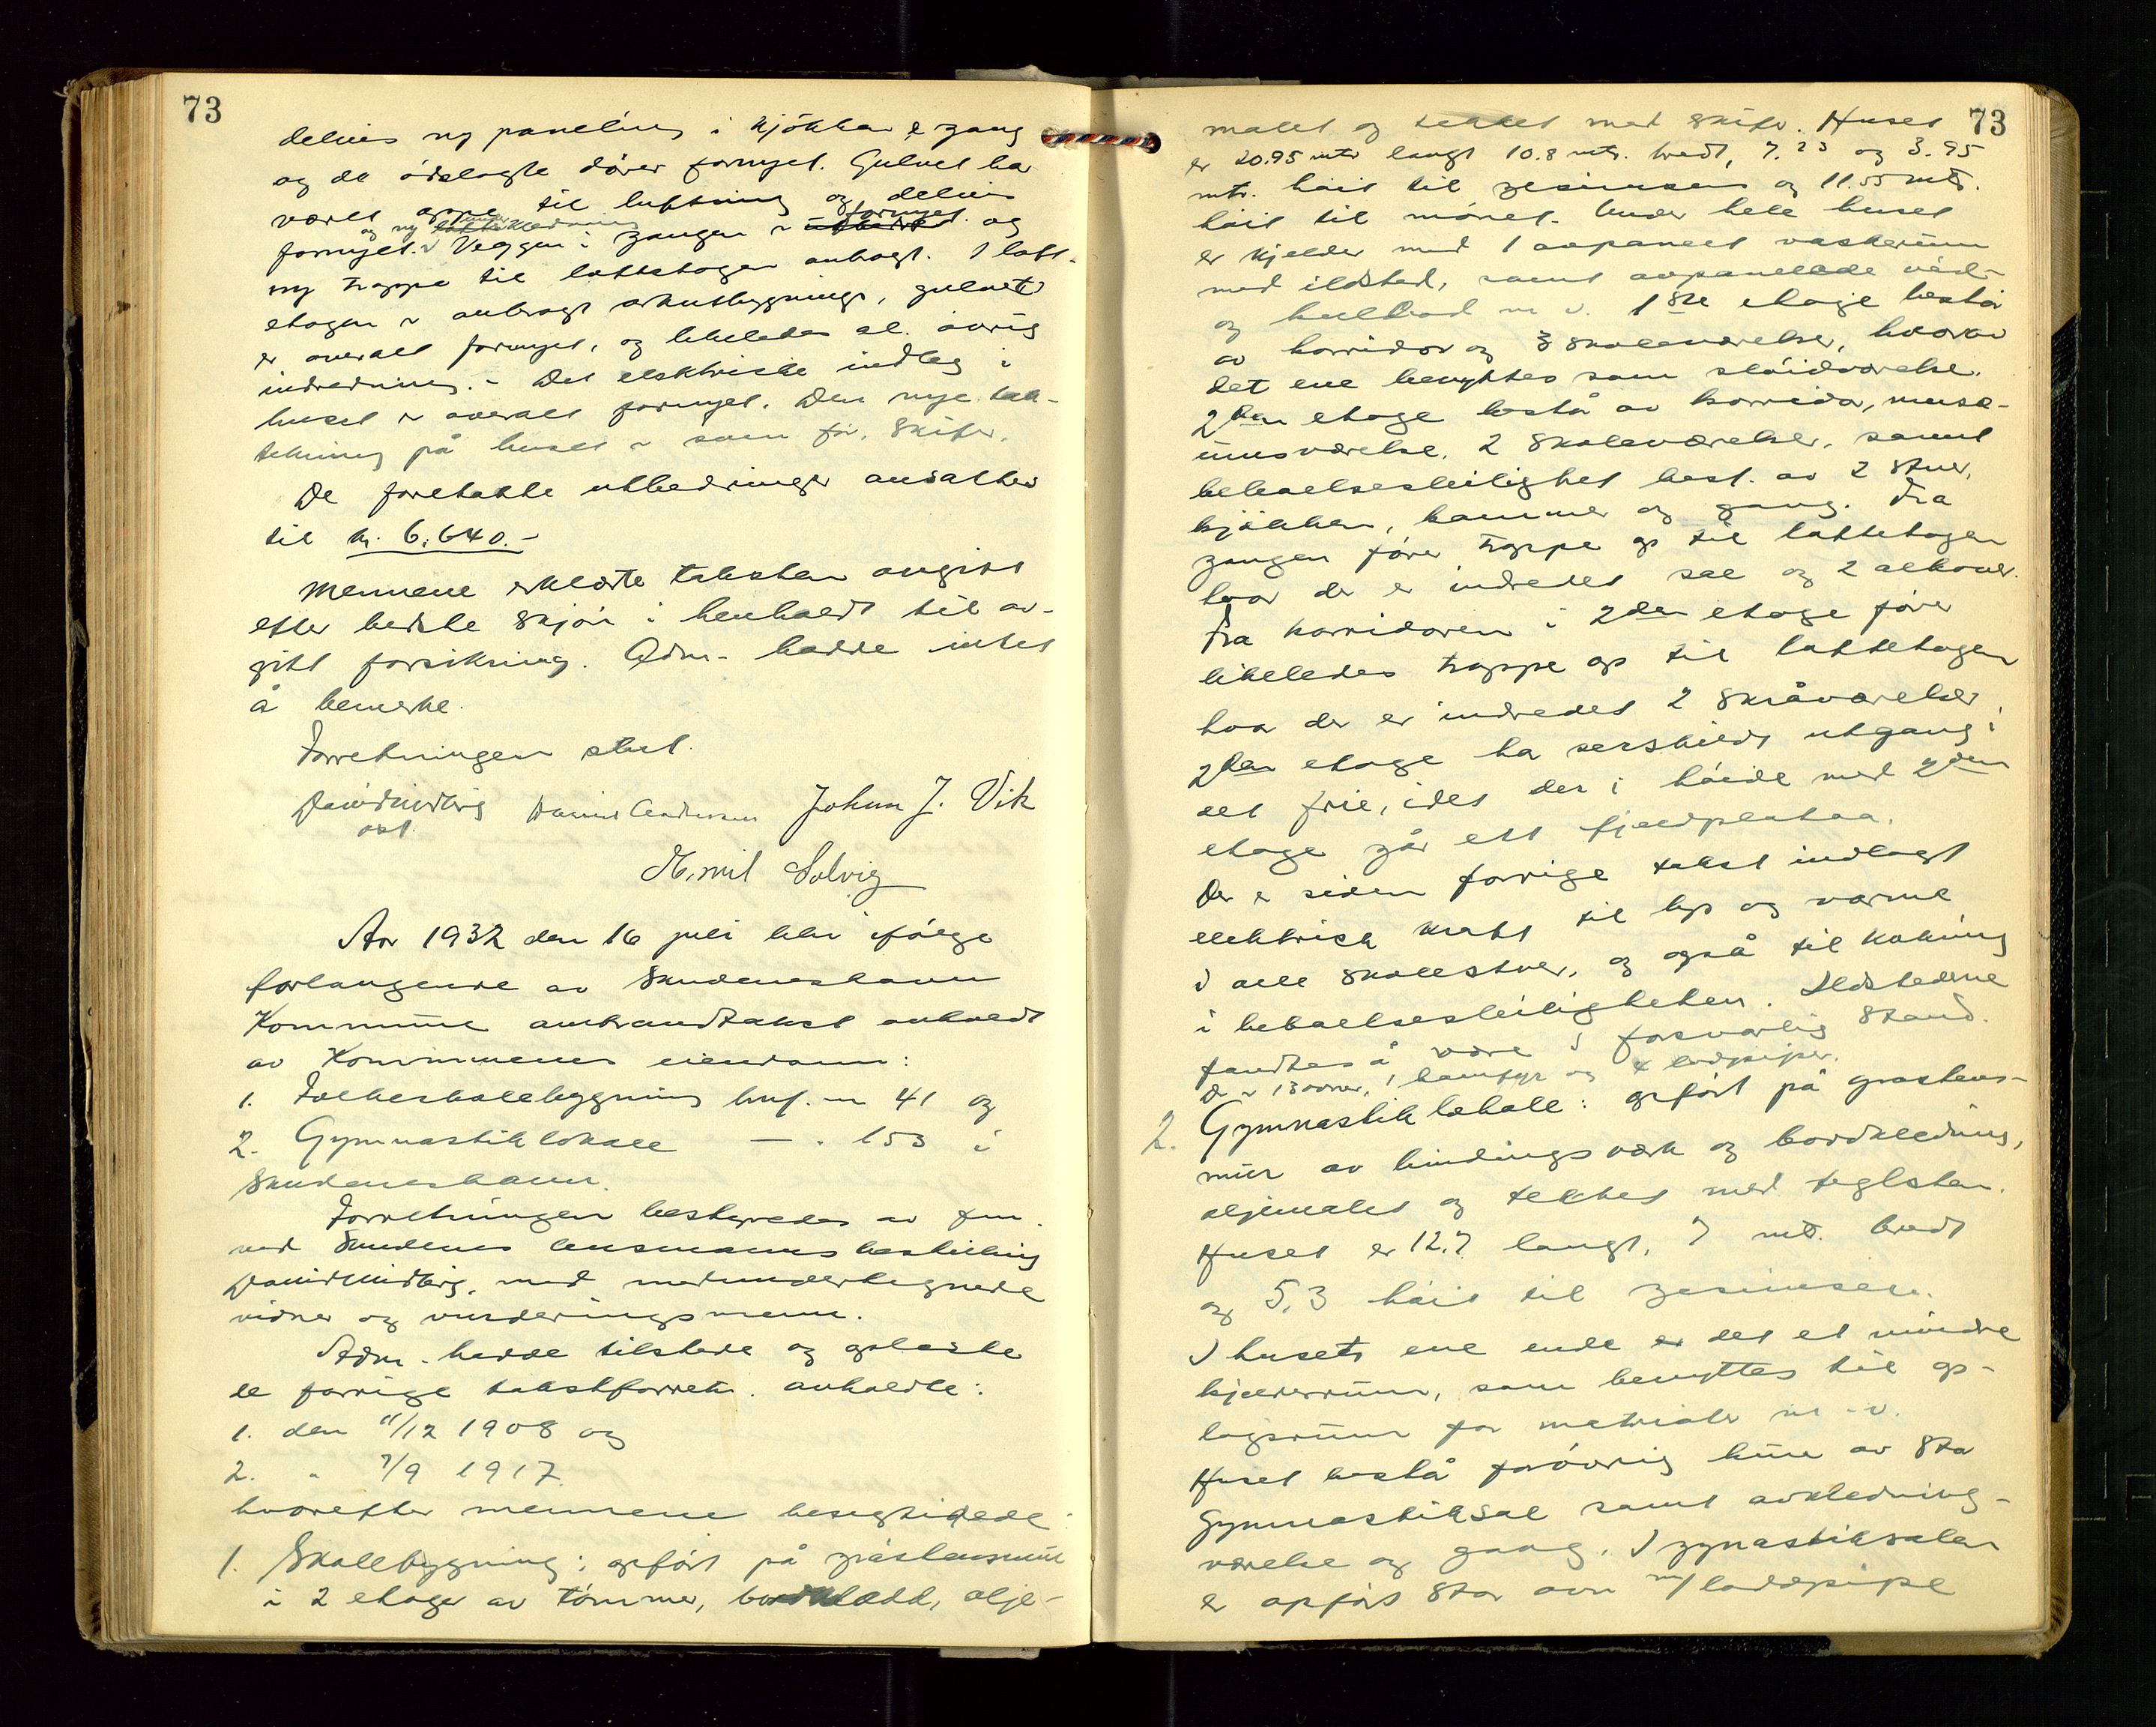 73
delvis ny paneling i kjökken & gang
og de ödelagte dörer fornyet. Gulvet har
været oppe til luftning og delvis
fornyet. og ny Veggen i gangen er fornyet. og
ny trappe til loftsetagen anbragt. I loft-
etagen er anbragt arkutbygninge, gulvet
er overalt fornyet, og likeledes al. övrig
indredning. - Det elektriske indlæg i
huset er overalt fornyet. Den nye tak-
tekning på huset er som för, skifer.
De foretatte utbedringer ansattes
til kr. 6.640.-
Mennene erklærte taksten avgitt
efter bedste skjön i henhold til av-
gitt forsikring. Adm. hadde intet
å bemerke.
Forretningen slut.
David Midbrig Daniel Andersen Johan J. Vik
ast.
Emil Solvig
Aar 1932 den 16 juli blev ifölge
forlangende av Skudeneshavn
Kommune ombrandtakst avholdt
av Kommunens eiendom:
1. Folkeskolebygning huf. nr 41 og
2. Gymnastiklokale — " 153 i
Skudeneshavn.
Forretningen bestyredes av fm.
ved Skudenes lensmannsbestilling
David Midbrig, med medundertegnede
vidner og vurderingsmenn.
Adm. hadde tilstede og oplæste
de forrige takstforretn. avholdte:
1. den 11/12 1908 og
2. " 7/9 1917.
hvorefter mennene besigtigede:
1. Skolebygning: opfört på gråstensmur
i 2 etager av tömmer, bordklædt, olje-
73
malet og tekket med skifer. Huset
er 20.95 mtr langt 10.8 mtr. bredt, 7.23 og 3.95
mtr. höit til gesimsen og 11.55 mtr.
höit til mönet. Under hele huset
er kjelder med 1 avpanelt vaskerum
med ildsted, samt avpanelede ved-
og kulbod m v. 1ste etage består
av korridor og 3 skoleværelser, hvorav
det ene benyttes som slöidværelse.
2den etage bestå av korridor, muse-
umsværelse, 2 skoleværelser, samt
beboelsesleilighet best. av 2 stuer,
kjökken, kammer og gang. Fra
gangen förer trappe op til loftetagen
hvor der er indredet sal og 2 alkover.
Fra korridoren i 2den etage förer
likeledes trappe op til loftetagen
hvor der er indredet 2 skråværelser
2den etage har serskildt utgang i
det frie, idet der i höide med 2den
etage går ett fjeldplataa.
Der er siden forrige takst indlagt
elektrisk kraft til lys og varme
i alle skolestuer, og også til kokning
i beboelsesleiligheten. Ildstederne
fandtes å være i forsvarlig stand.
Der er 13 ovner, 1 komfyr og 4 lödpiper.
2. Gymnastiklokale: opfört på gråstens-
mur av bindingsverk og bordklædning,
oljemalet og tekket med teglsten.
Huset er 12.7 langt, 7 mtr. bredt
og 5.3 höit til gesimsen.
I husets ene ende er det et mindre
kjelderrum, som benyttes til op-
lagsrum for materialer m.v.
Huset bestå forövrig kun av stor
Gymnastiksal samt avklædnings-
værelse og gang. I gynastiksalen
er opfört stor ovn m/ lodpipe